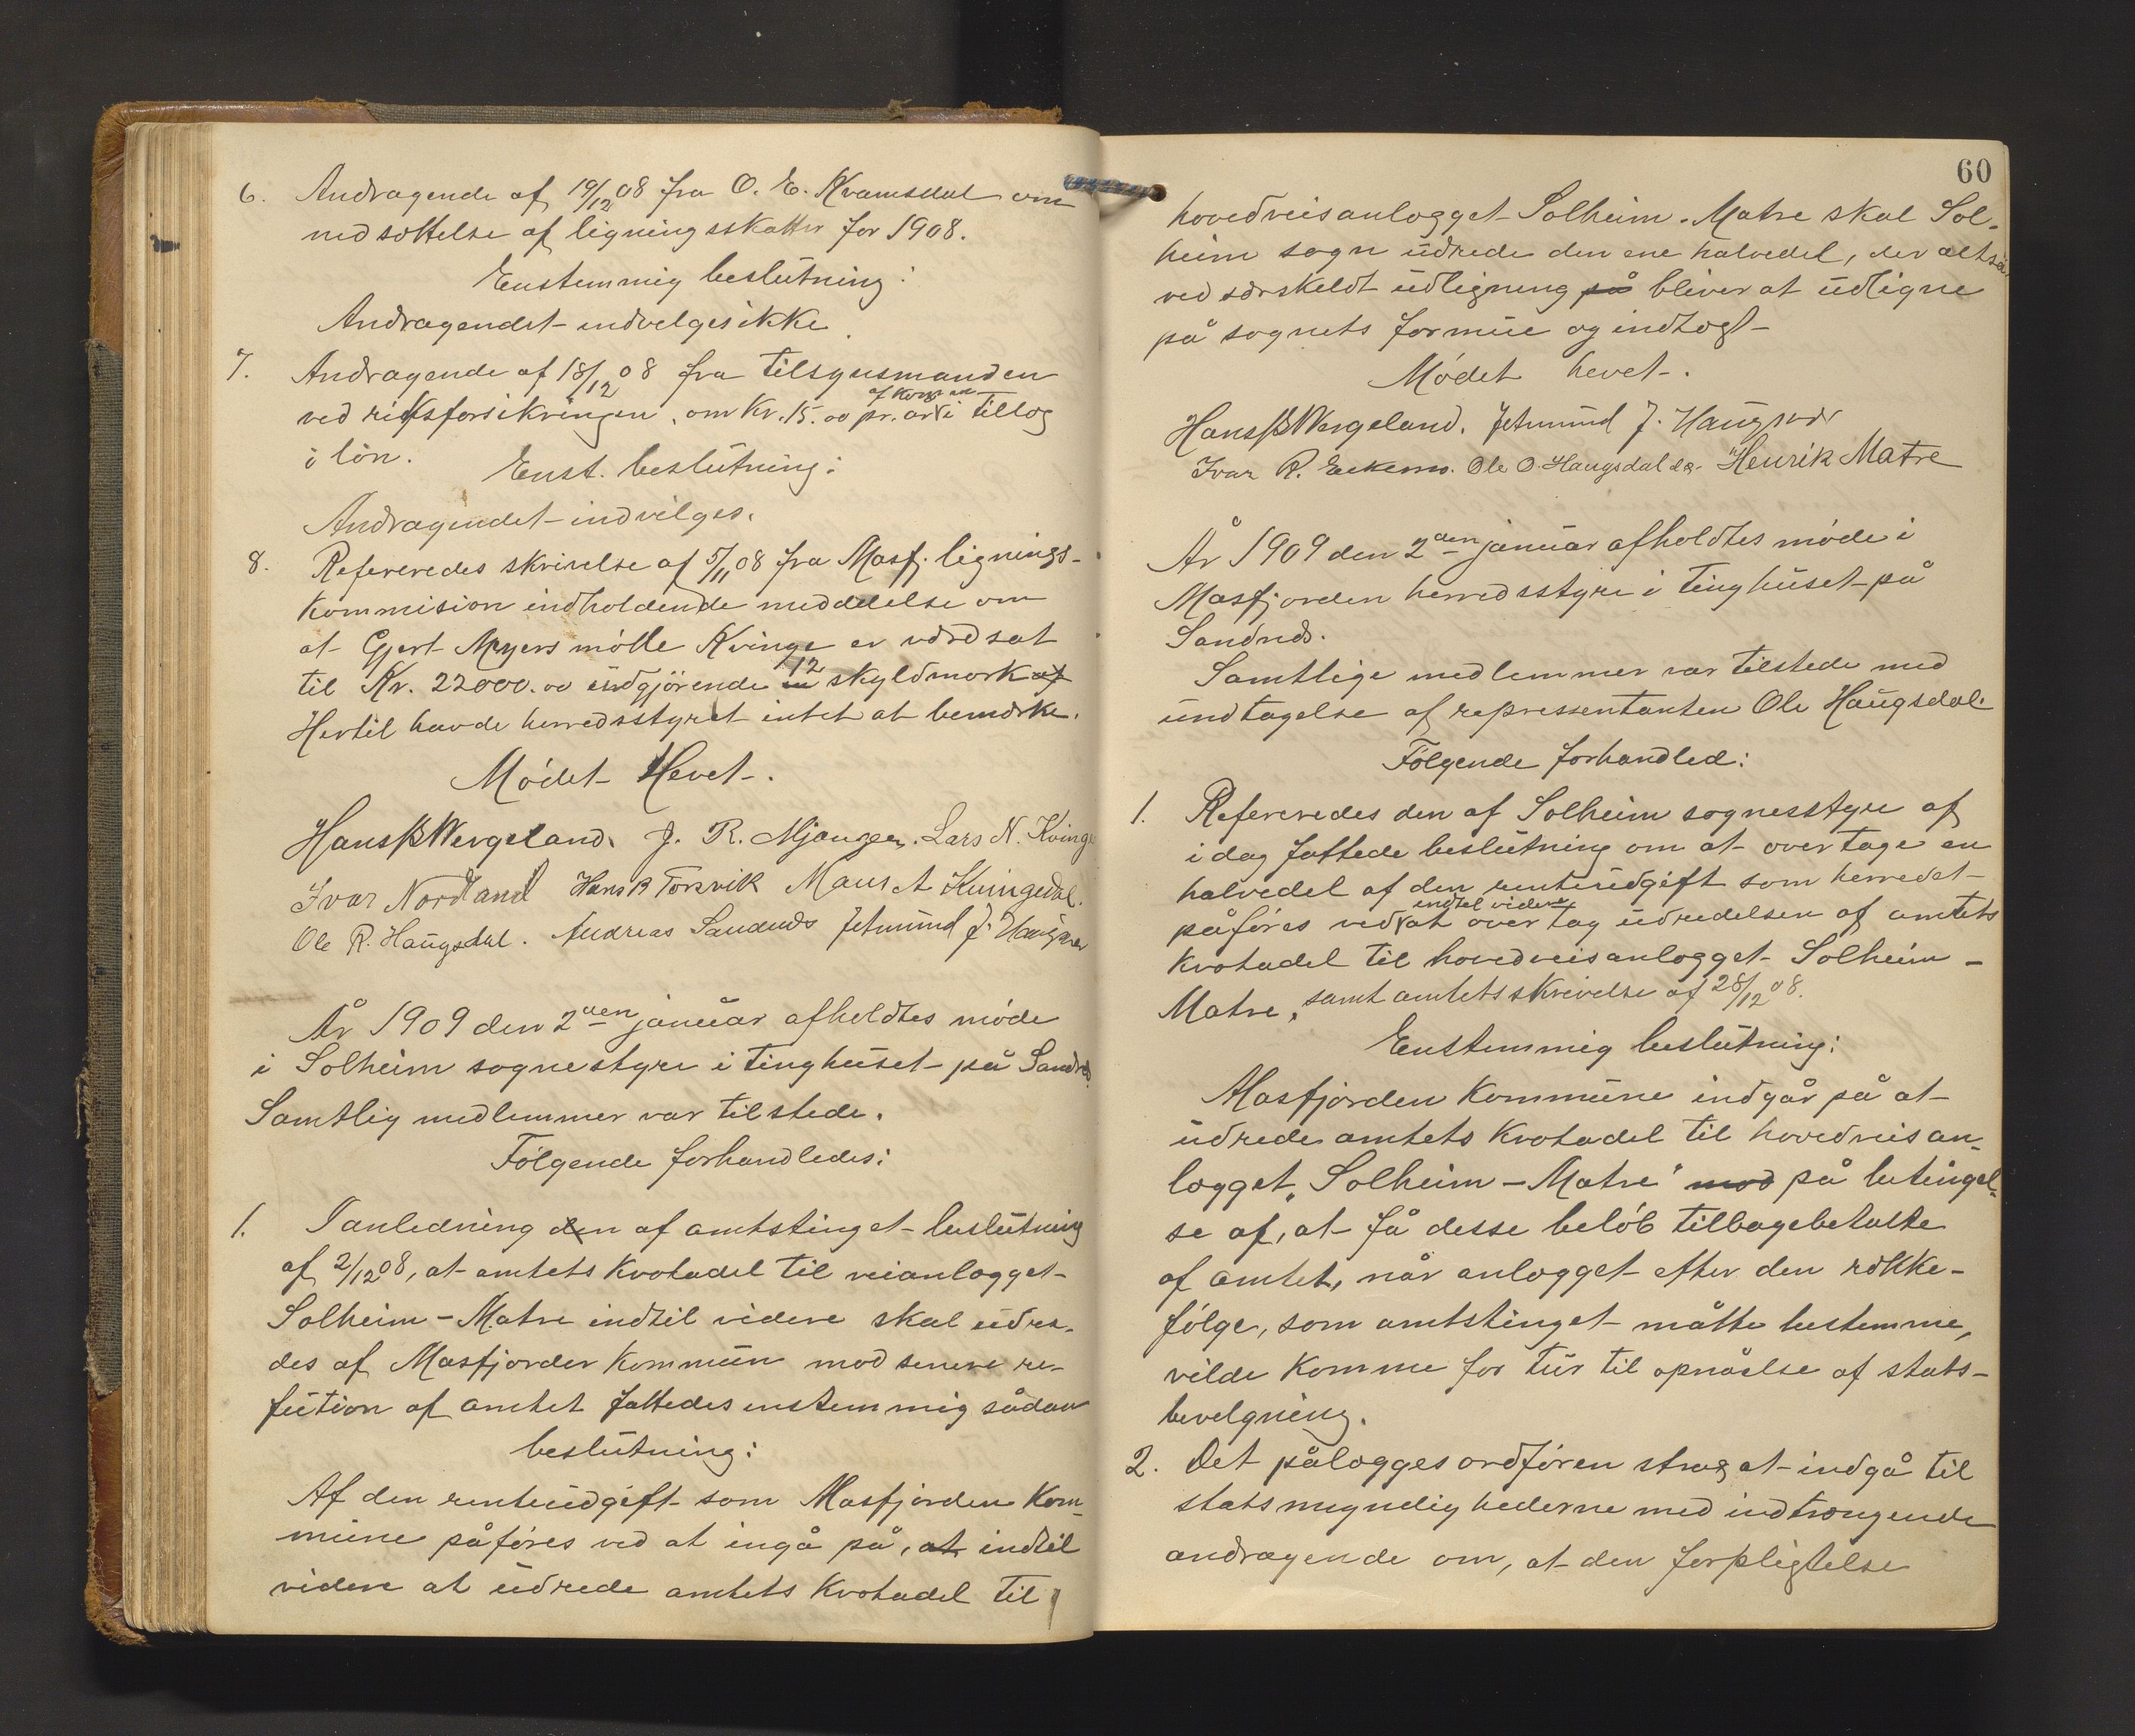 6. Andragende af 19/12 08 fra O. E. Kvamsdal om
nedsættelse af ligningsskatten for 1908.
Enstemmig beslutning:
Andragendet indvelges ikke.
7. Andragende af 18/12 08 fra tilsynsmanden
ved riksforsikringen, om kr. 15.00 pr. ar i tillæg
i løn.
Enst. beslutning:
Andragendet indvilges.
8. Refereredes skrivelse af 5/11 08 fra Masf. lignings-
kommision indholdende meddelelse om
at Gjert Meyers mølle Kvinge er værdsat
til Kr. 22000.00 üdgjørende 12 skyldmark
Hertil havde herredsstyret intet at bemærke.
Mødet Hevet.
Hans B Wergeland. J. R. Mjanger. Lars N. Kvinge
Ivar Nordland Hans B Torsvik Mans A Kvingedal.
Ole R. Haugsdal. Andreas Sandnæs Jetmund J. Haugsvær
År 1909 den 2den januar afholdtes møde
i Solheim sognestyre i tinghuset på Sandnæs
Samtlig medlemmer var tilstede.
Følgende forhandledes:
1. I anledning den af amtstinget beslutning
af 2/12 08, at amtets kvotadel til veianlægget
Solheim - Matre indtil videre skal udre-
des af Masfjorden kommun mod senere re-
fution af amtet fattedes enstemmig sådan
beslutning:
Af den renteudgift som Masfjorden kom-
mune påføres ved at ingå på, at indtil
videre at udrede amtets kvotadel til
60
hovedveisanlægget Solheim - Matre skal Sol-
heim sogn udrede den ene halvedel, der altså
ved særskeldt udligning på bliver at udligne
på sognets formue og indtægt
Mødet hevet.
Hans B Wergeland. Jetmund J. Haugsvær
Ivar R. Eikemo. Ole O. Haugsdal Henrik Matre
År 1909 den 2den januar afholdtes møde i
Masfjorden herredsstyre i tinghuset på
Sandnæs.
Samtlige medlemmer var tilstede med
undtagelse af repressentanten Ole Haugsdal.
Følgende forhandled:
1. Refereredes den af Solheim sognesstyre af
idag fattede beslutning om at overtage en
halvedel af den renteudgift som herredet
påføres ved at indtel videre overtag udredelsen af amtets
kvotadel til hovedveisanlægget Solheim -
Matre, samt amtets skrivelse af 28/12 08.
Enstemmig beslutning:
Masfjorden kommune indgår på at
udrede amtets kvotadel til hovedveisan-
lægget „Solheim - Matre" mod på betingel-
se af, at få desse beløb tilbagebetalte
af amtet, når anlægget efter den række-
følge, som amtstinget måtte bestemme,
vilde komme for tur til opnåelse af stats-
bevelgning.
2. Det pålægges ordføren strax at indgå til
statsmyndighederne med indtrængende
andragende om, at den forpligtelse